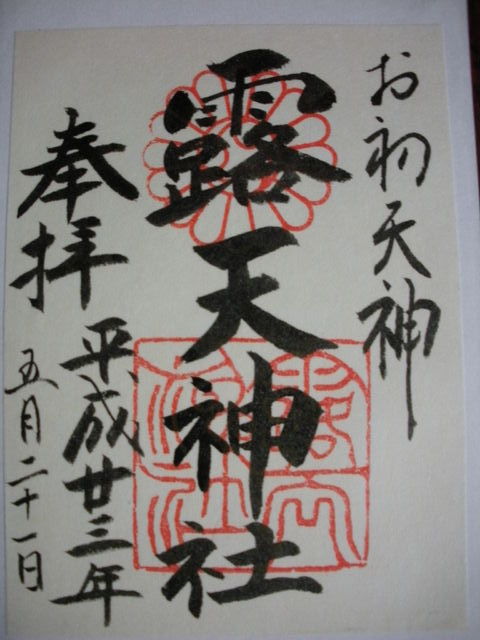 お初天神
露天神社
奉拝
平成廿三年
五月二十一日